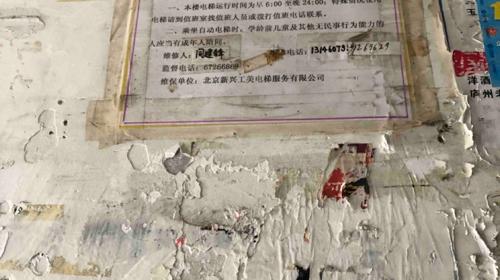 一、本楼电梯运行时间为早6:00至晚24:00，特殊情况使用
电梯请到值班室找值班人员或拨打值班电话联系。
二、乘坐自动电梯时，学龄前儿童及其他无民事行为能力的
人应当有成年人陪同。
维修人：
电话：
监督电话：67266869
维保单位：北京新兴工美电梯服务有限公司
玉
洋酒
庐州老